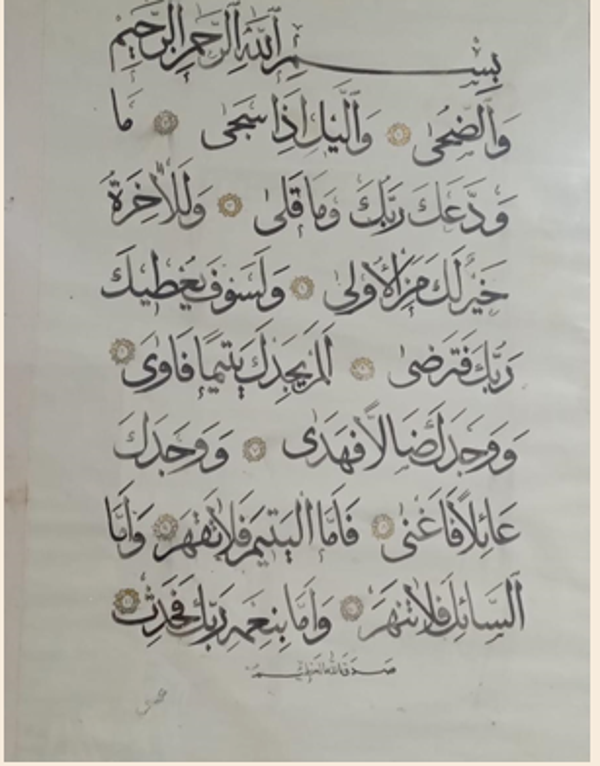 بِسْمِ ٱللَّهِ ٱلرَّحْمَٰنِ ٱلرَّحِيمِ
وَٱلضُّحَىٰ وَٱلَّيْلِ إِذَا سَجَىٰ مَا
وَدَّعَكَ رَبُّكَ وَمَا قَلَىٰ وَلَلْآخِرَةُ
خَيْرٌ لَكَ مِنَ ٱلْأُولَىٰ وَلَسَوْفَ يُعْطِيكَ
رَبُّكَ فَتَرْضَىٰ أَلَمْ يَجِدْكَ يَتِيمًا فَآوَىٰ
وَوَجَدَكَ ضَالًّا فَهَدَىٰ وَوَجَدَكَ
عَائِلًا فَأَغْنَىٰ فَأَمَّا ٱلْيَتِيمَ فَلَا تَقْهَرْ وَأَمَّا
ٱلسَّائِلَ فَلَا تَنْهَرْ وَأَمَّا بِنِعْمَةِ رَبِّكَ فَحَدِّثْ
صدق الله العظيم